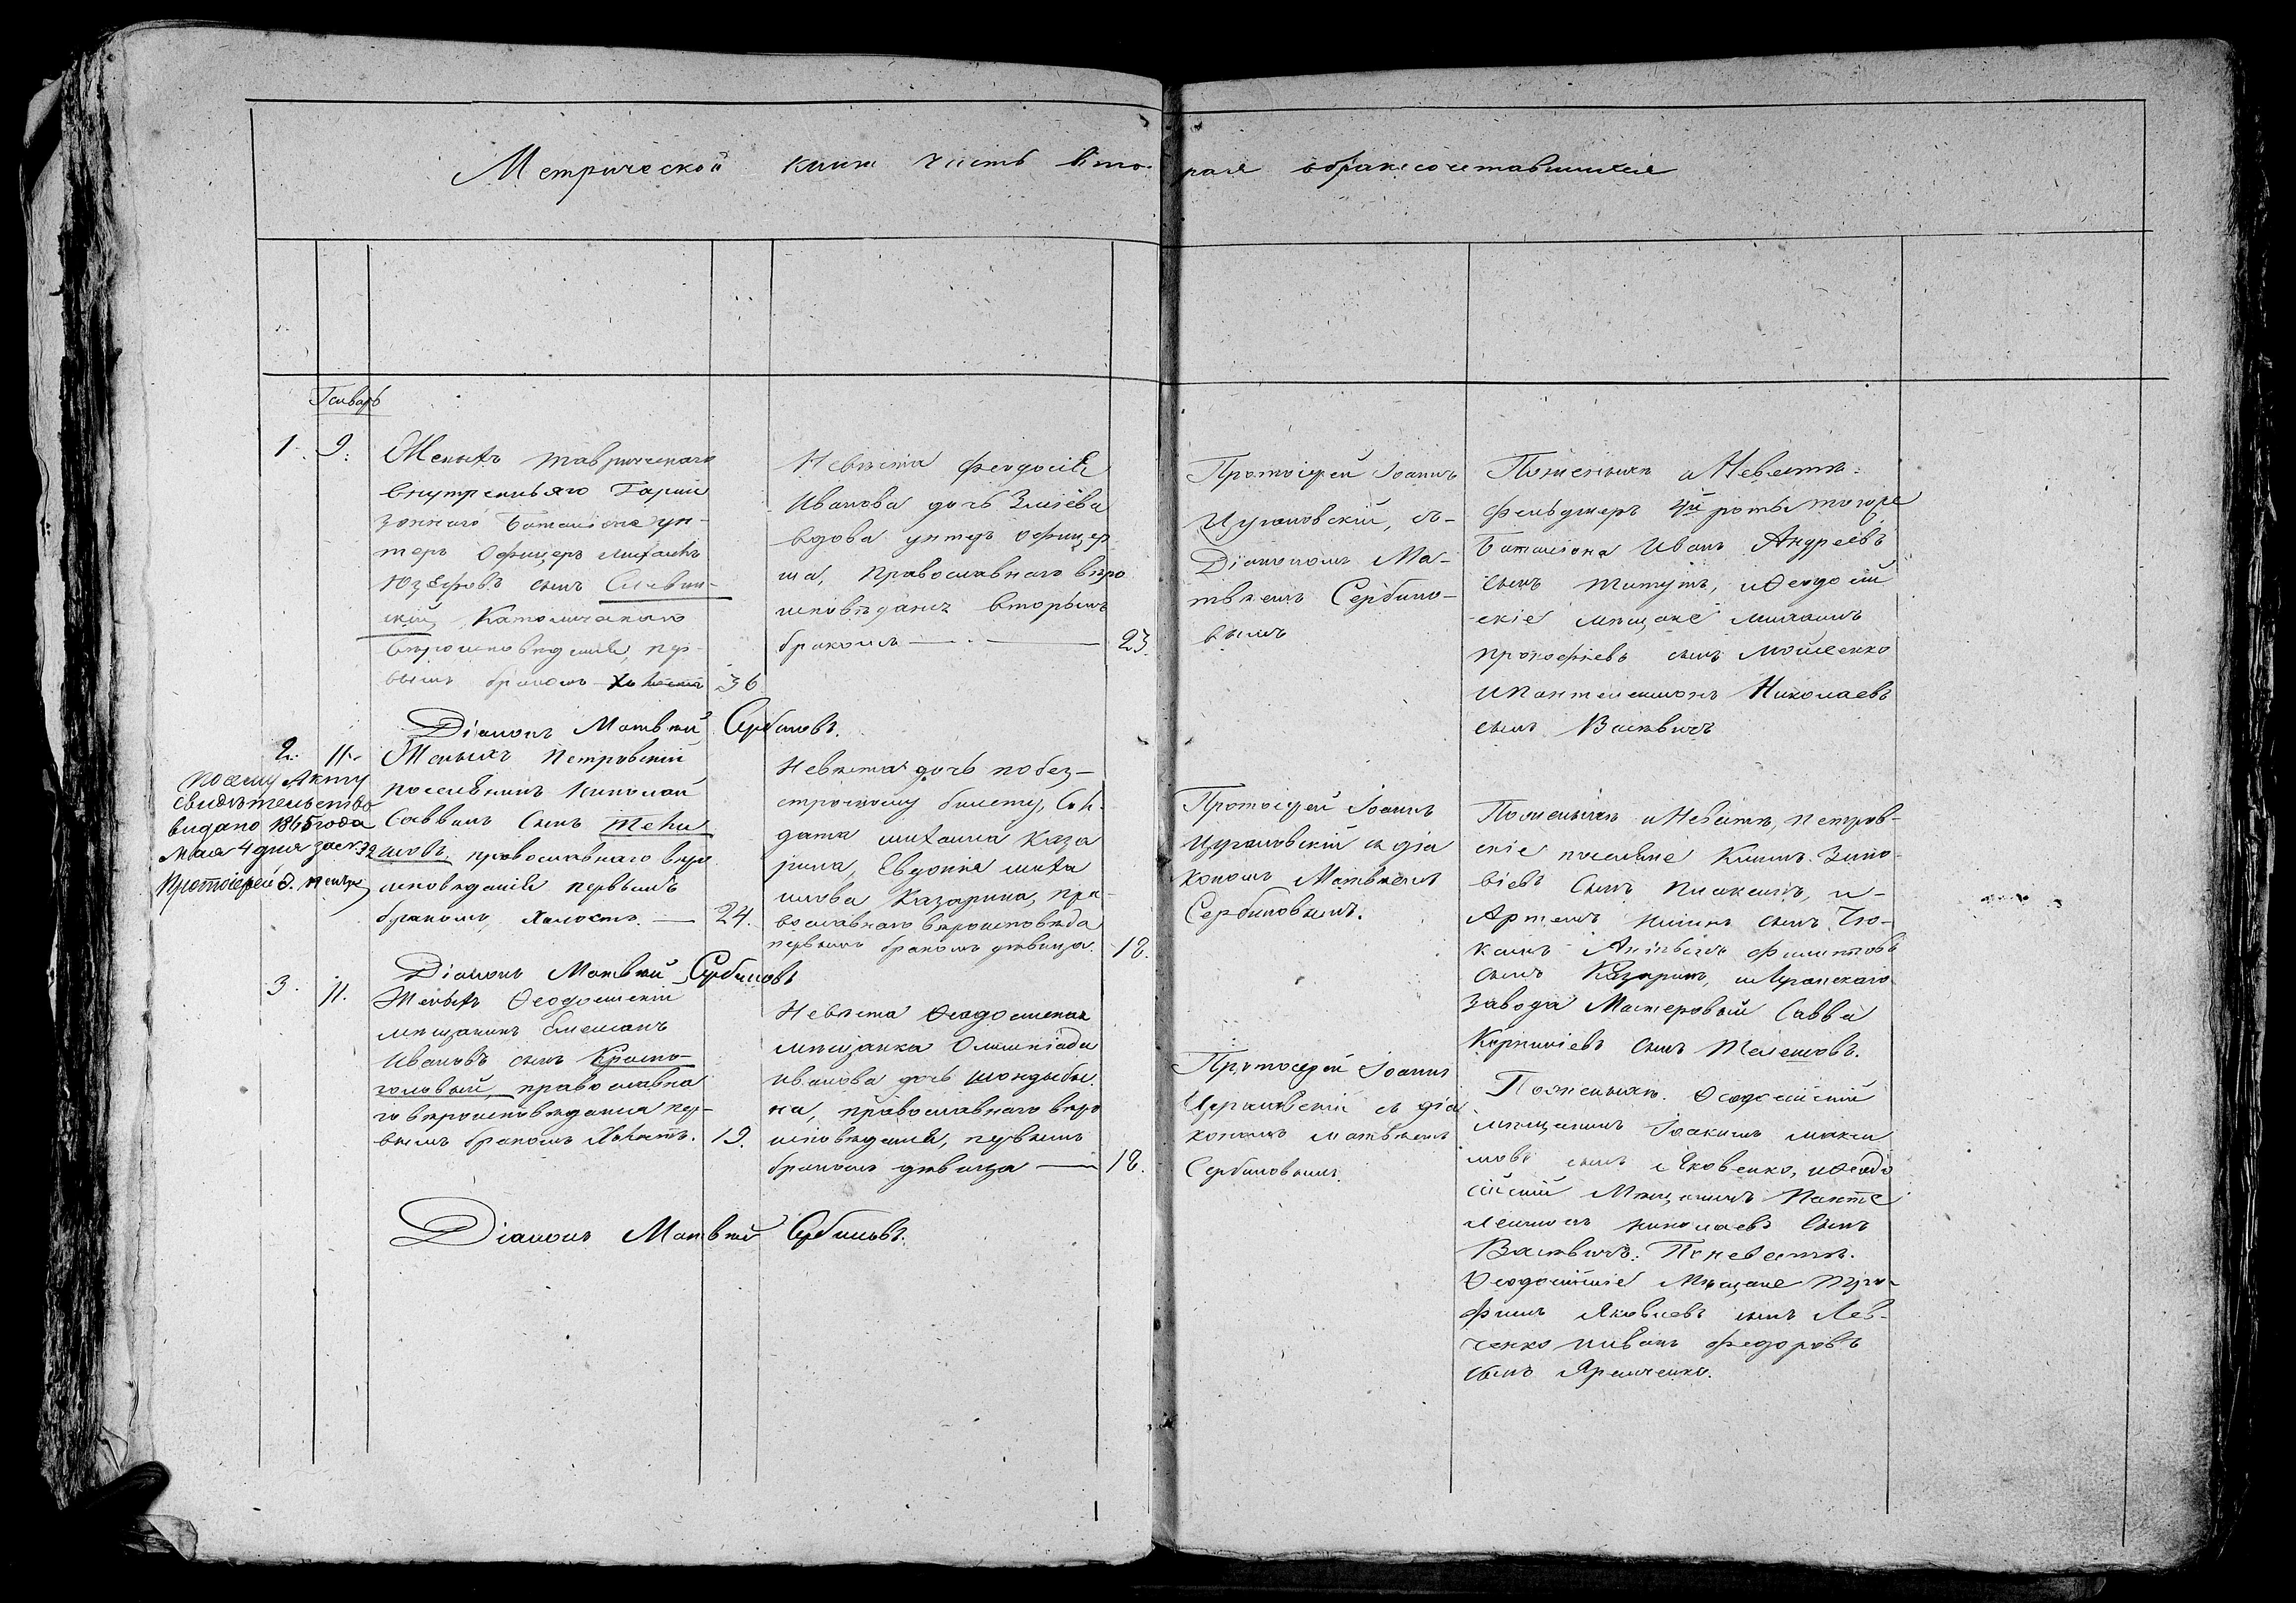 Метрической книги часть вторая о бракосочетавшихся
Генварь
1. 9.
Женихъ Таврического
внутренняго Гарни
зоннаго Баталіона ун-
теръ Офицеръ Михаилъ
Юзефовъ сынъ
скій, Католическаго
вероисповеданія, пер-
вымъ бракомъ 36
Невѣста Феодосія
Иванова дочь
вдова унтеръ офицер
ша, Православнаго вѣро
исповѣданія вторымъ
бракомъ — 23.
Протоіерей Іоаннъ
Цугановскій, съ-
Діакономъ Ма-
твѣемъ Сербино-
вымъ
По женихѣ и Невестѣ:
Фельдшеръ 4й роты того же
Баталіона Иванъ Андреевъ
сынъ Титутъ, и Феодосій
скіе мещане Михаилъ
Прокофіевъ сынъ Мойсеенко
и Пантелеимонъ Николаевъ
сынъ
Діаконъ Матвѣй Сербиновъ.
2. 11.
По сему Акту
свидѣтельство
видано 1865 года
мая 4 дня за № 32
Протоіерей
Женихъ Петровскій
поселянинъ Николай
Саввинъ сынъ Теле
шовъ, православнаго веро
исповеданія первымъ
бракомъ, холостъ. — 24.
Невѣста дочь по без-
строчному билету, Сол-
дата Михаила Каза
рина, Евдокія Миха
илова Казарина, пра-
вославнаго вѣроисповѣда
первымъ бракомъ дѣвица. 18.
Протоіерей Іоаннъ
Цугановскій съ діа
кономъ Матвѣемъ
Сербиновымъ.
По женихѣ и Невѣстѣ, Петров-
скіе поселяне Климъ Зино-
віевъ сынъ и-
Артемъ сынъ
Филиповъ
сынъ Казаринъ, и Луганскаго
завода Мастеровый Савва
Корниліевъ сынъ Телешовъ.
Діаконъ Матвѣй Сербиновъ
3. 11.
Женихъ Феодосійскій
мещанинъ
Ивановъ сынъ Красно-
головый, православна
го вероисповеданія пер-
вымъ бракомъ Холостъ. 19.
Невѣста Феодосійская
мещанка Олимпіада
Иванова дочь
на, православнаго веро
исповеданія, первымъ
бракомъ дѣвица — 18.
Протоіерей Іоаннъ
Цугановскій съ діа
кономъ Матвѣемъ
Сербиновымъ.
По женихѣ. Феодосійскій
мѣщанинъ Іоакимъ Макси
мовъ сынъ Яковенко, и Феодо
сійскій Мѣщанинъ Панте
леимонъ Николаевъ сынъ
По невестѣ.
Феодосійскіе Мѣщане Тро-
фимъ Яковлевъ сынъ Лев-
ченко и Иванъ Федоровъ
сынъ Яремченко.
Діаконъ Матвѣй Сербиновъ.